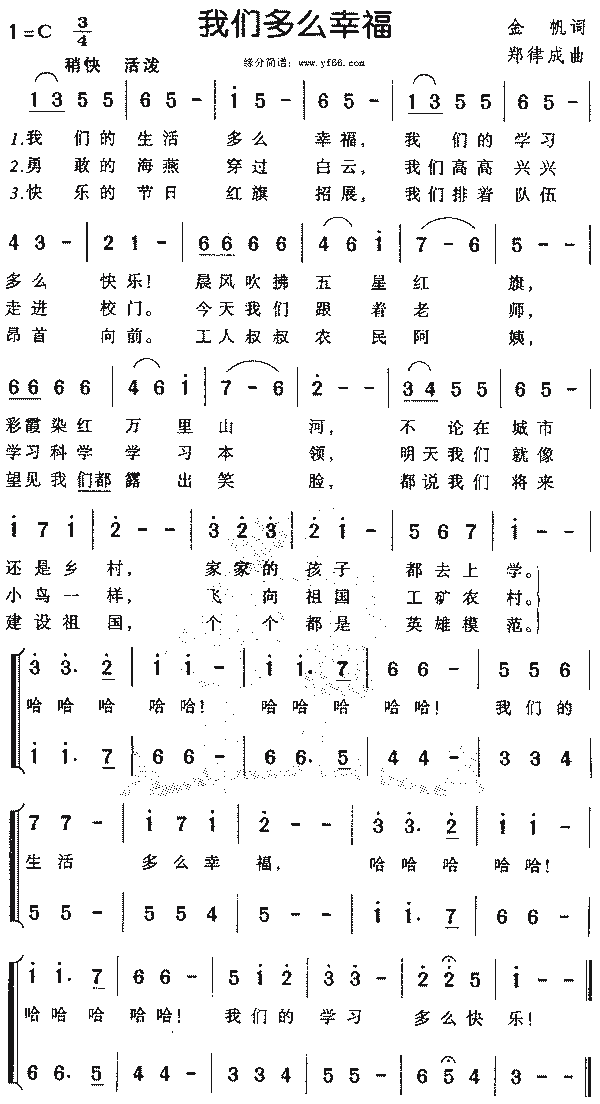 1=C 3/4 我们多么幸福 金帆词
稍快 活泼 缘分简谱：www.yf66.com 郑律成曲
1 3 5 5 | 6 5 - | i 5 - | 6 5 - | 1 3 5 5 | 6 5 -
1.我 们的 生活 多么 幸福, 我 们的 学习
2.勇 敢的 海燕 穿过 白云, 我们高高 兴兴
3.快 乐的 节日 红旗 招展, 我们排着 队伍
4 3 - | 2 1 - | 6 6 6 6 | 4 6 i | 7 - 6 | 5 - -
多么 快乐! 晨风吹拂 五星红 旗,
走进 校门。 今天我们 跟着老 师,
昂首 向前。 工人叔叔 农民阿 姨,
6 6 6 6 | 4 6 i | 7 - 6 | 2̇ - - | 3 4 5 5 | 6 5 -
彩霞染红 万里山 河, 不论在 城市
学习科学 学习本 领, 明天我们 就像
望见我们都 露出笑 脸, 都说我们 将来
i 7 i | 2̇ - - | 3̇ 2̇ 3̇ | 2̇ i - | 5 6 7 | i - -
还是乡 村, 家家的 孩子 都去上 学。
小鸟一 样, 飞向祖国 工矿农 村。
建设祖 国, 个个都是 英雄模 范。
3̇ 3̇. 2̇ | i i - | i i. 7 | 6 6 - | 5 5 6
哈哈哈 哈哈! 哈哈哈 哈哈! 我们的
i i. 7 | 6 6 - | 6 6. 5 | 4 4 - | 3 3 4
7 7 - | i 7 i | 2̇ - - | 3̇ 3̇. 2̇ | i i -
生活 多么幸 福, 哈哈哈 哈哈!
5 5 - | 5 5 4 | 5 - - | i i. 7 | 6 6 -
i i. 7 | 6 6 - | 5 i 2̇ | 3̇ 3̇ - | 2̇ 2̇ 5 | i - -
哈哈哈 哈哈! 我们的 学习 多么快 乐!
6 6. 5 | 4 4 - | 3 3 4 | 5 5 - | 6 5 4 | 3 - -